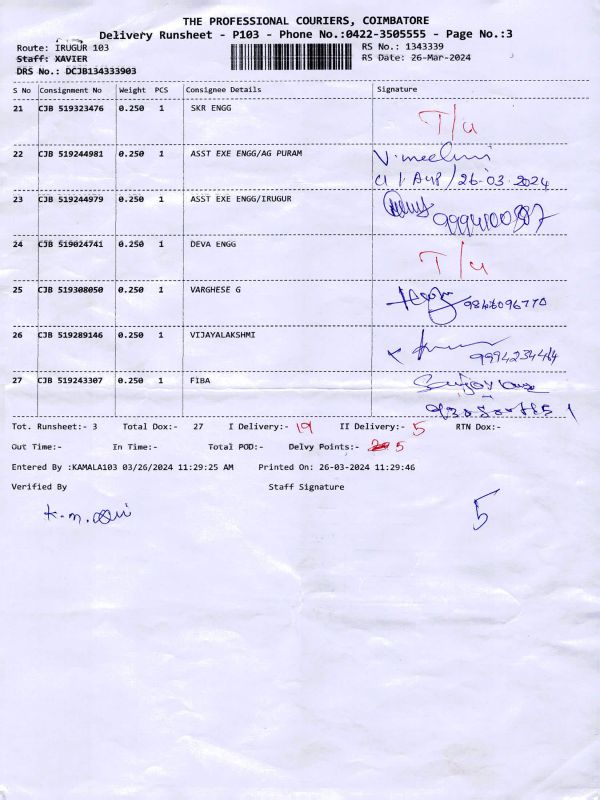 THE PROFESSIONAL COURIERS, COIMBATORE
Delivery Runsheet - P103 - Phone No.:0422-3505555 - Page No.:3
Route: IRUGUR 103 RS No.: 1343339
Staff: XAVIER RS Date: 26-Mar-2024
DRS No.: DCJB134333903
S No Consignment No Weight PCS Consignee Details Signature
21 CJB 519323476 0.250 1 SKR ENGG T/u
22 CJB 519244981 0.250 1 ASST EXE ENGG/AG PURAM
26.03.2024
23 CJB 519244979 0.250 1 ASST EXE ENGG/IRUGUR
24 CJB 519024741 0.250 1 DEVA ENGG T/u
25 CJB 519308050 0.250 1 VARGHESE G
26 CJB 519289146 0.250 1 VIJAYALAKSHMI
27 CJB 519243307 0.250 1 FIBA
Tot. Runsheet:- 3 Total Dox:- 27 I Delivery:- 19 II Delivery:- 5 RTN Dox:-
Out Time:- In Time:- Total POD:- Delvy Points:- 5
Entered By :KAMALA103 03/26/2024 11:29:25 AM Printed On: 26-03-2024 11:29:46
Verified By Staff Signature
5